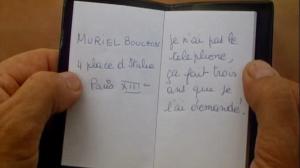 MURIEL BOUCHON
4 place d'Italie
Paris XIII
je n'ai pas le
telephone,
ça fait trois
ans que je
l'ai demandé!